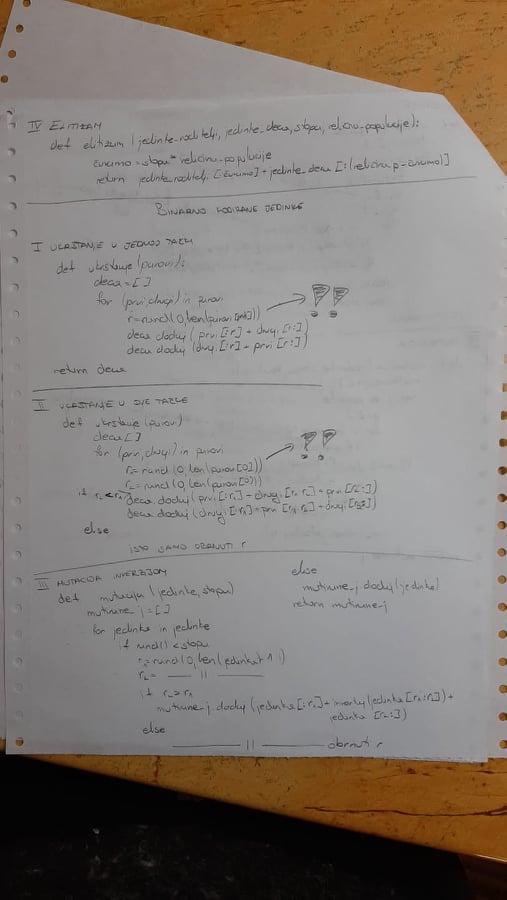 IV ELITIZAM
def elitizam (jedinke_roditelji, jedinke_deca, stopa, velicina_populacije):
cuvamo = stopa * velicina_populacije
return jedinke_roditelji [:cuvamo] + jedinke_deca [:(velicina_p - cuvamo)]
BINARNO KODIRANE JEDINKE
I UKRSTANJE U JEDNOJ TACKI
def ukrstanje (parovi):
deca = [ ]
for (prvi, drugi) in parovi
r = rand (0, len(parovi
deca dodaj ( prvi [:r] + drugi [r:])
deca dodaj (drugi [:r] + prvi [r:])
!!
return deca
II UKRSTANJE U DVE TACKE
def ukrstanje (parovi)
deca [ ]
for (prvi, drugi) in parovi
r₁ = rand (0, len (parovi [0]))
r₂ = rand (0, len (parovi [0]))
!!
if r₂ < r₁ deca dodaj ( prvi [:r₁] + drugi [r₁ r₂] + prvi [r₂:])
deca dodaj (drugi [:r₁] + prvi [r₁ r₂] + drugi [r₂:])
else
ISTO SAMO OBRNUTI r
III MUTACIJA INVERZIJOM
def mutacija (jedinke, stopa)
mutirane_j = [ ]
for jedinka in jedinke
if rand() < stopa
r₁ = rand (0, len (jedinka
r₂ = —— || ——
if r₂ > r₁
mutirane_j. dodaj (jedinka [:r₁] + invertuj (jedinka [r₁:r₂]) +
jedinka [r₂:])
else
—— || —— obrnuti r
else
mutirane_j dodaj (jedinka)
return mutirane_j